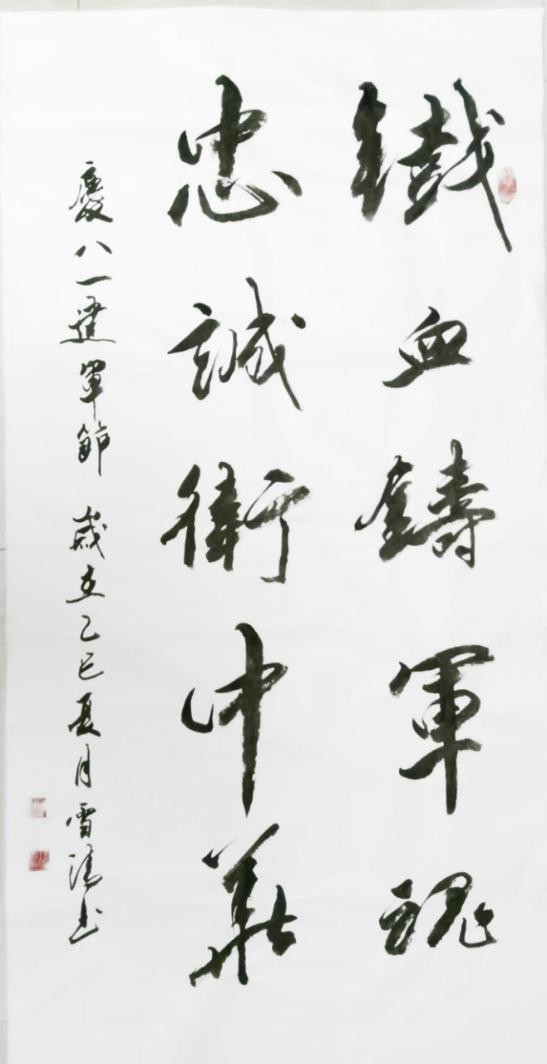 鐵血鑄軍魂
忠誠衛中華
慶八一建軍節 歲在乙巳夏月雪濤書